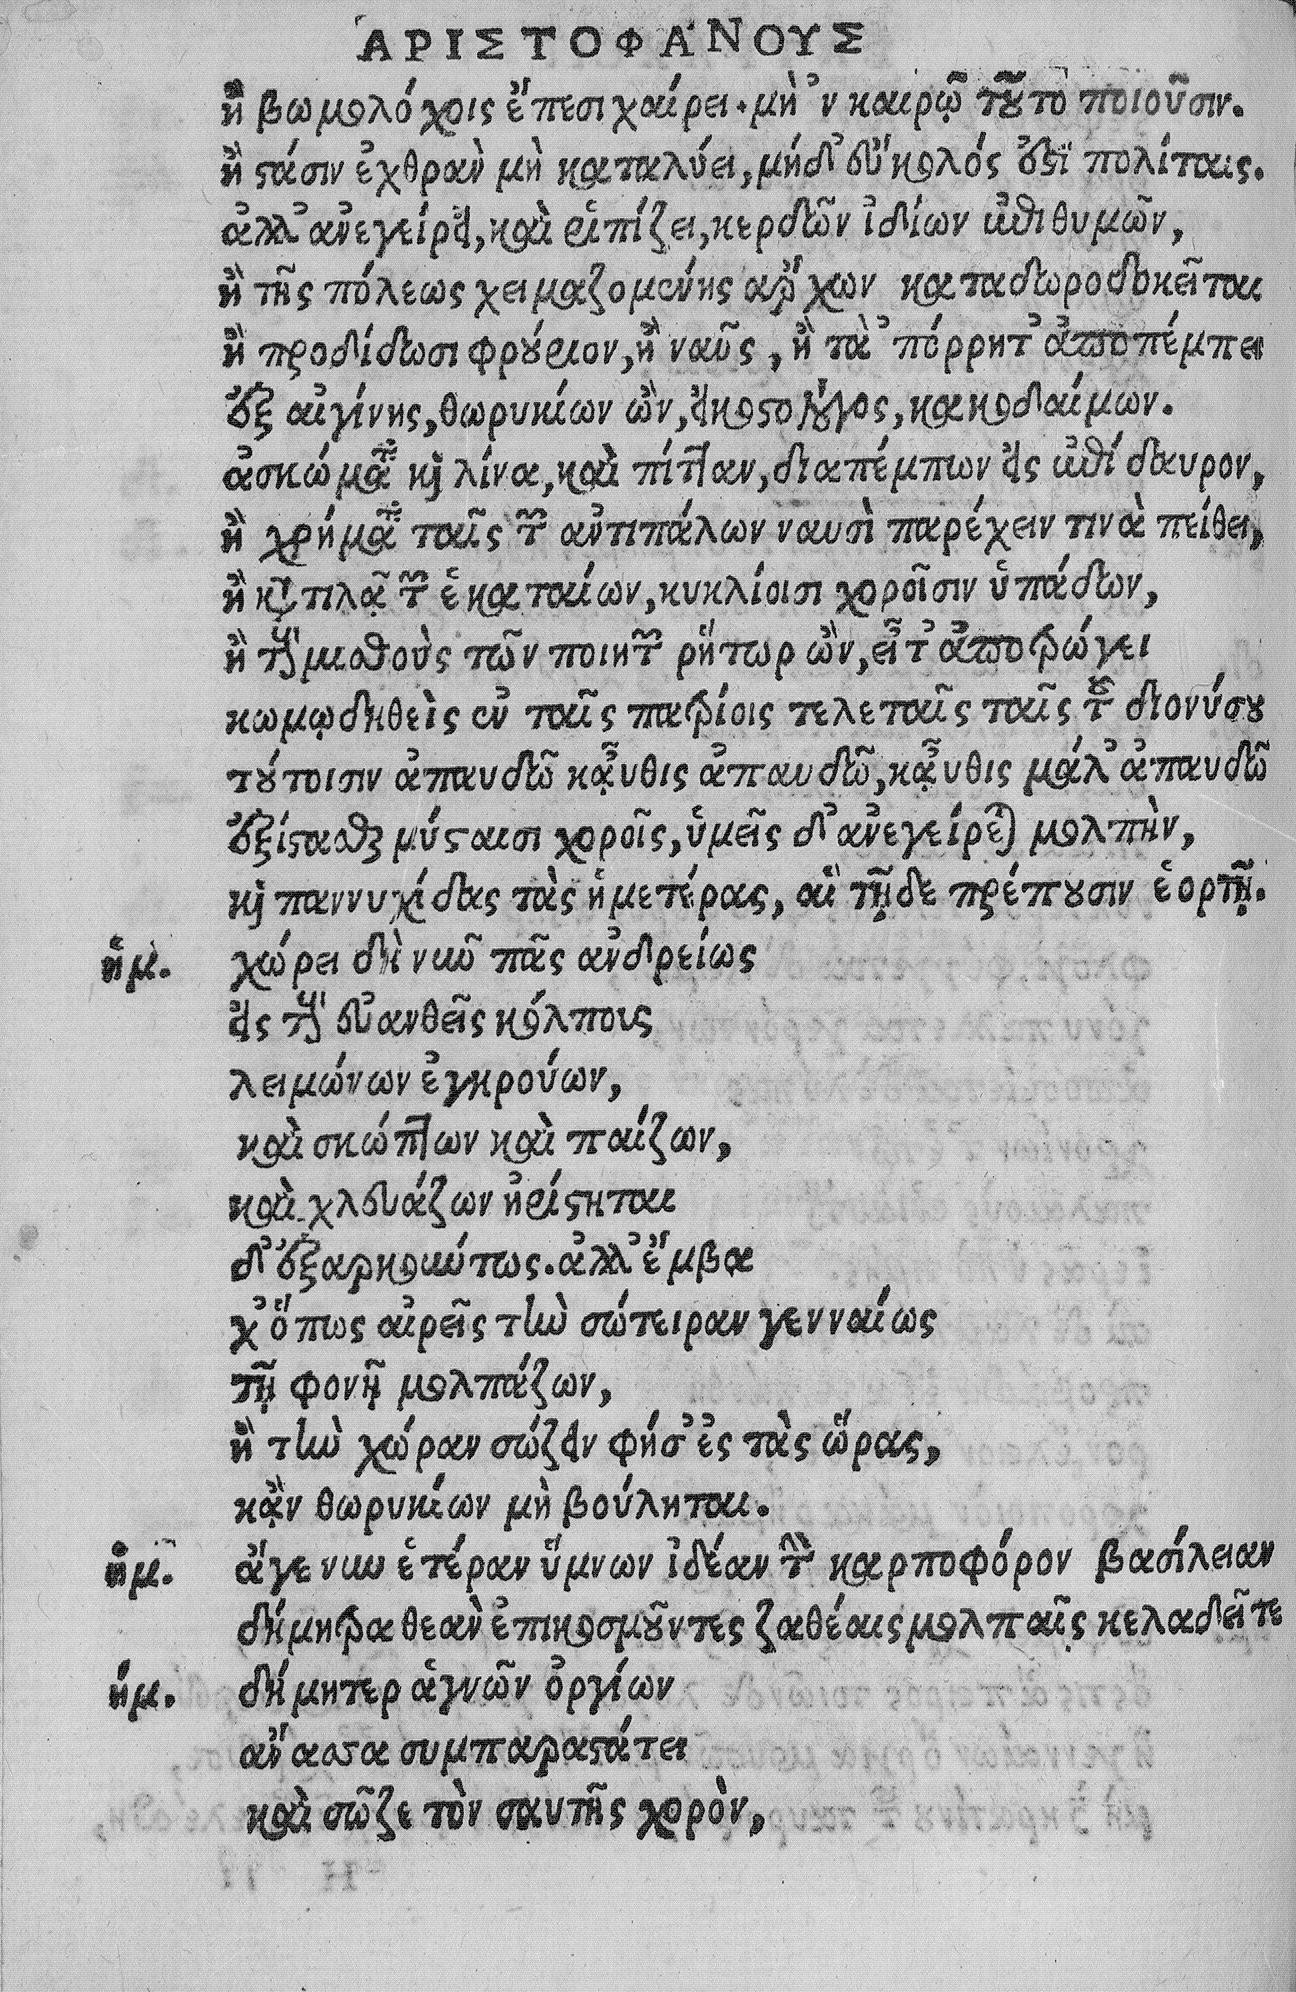 ἈΡΙΣΤΟΦΆΝΟΥΣ
ἢ βωμολόχοις ἔπεσι χαίρει. μὴ ’ν καιρῷ τοῦτο ποιοῦσιν.
ἢ στάσιν ἐχθρὰν μὴ καταλύει, μήδ' εὔκολός ἐστὶ πολίταις.
ἀλλ' ἀνεγείρει, καὶ ῥιπίζει, κερδῶν ἰδίων ἐπιθυμῶν,
ἢ τῆς πόλεως χειμαζομένης ἄρχων καταδωροδοκεῖται
ἢ προδίδωσι φρούριον, ἢ ναῦς, ἢ τὰ ’πόρρητ' ἀποπέμπει
ἐξ αἰγίνης, θωρυκίων ὢν, εἰκοστολόγος, κακοδαίμων.
ἀσκώματα καὶ λίνα, καὶ πίτταν, διαπέμπων εἰς ἐπίδαυρον,
ἢ χρήματα ταῖς τῶν ἀντιπάλων ναυσὶ παρέχειν τινὰ πείθει,
ἢ κατατιλᾷ τῶν ἑκαταίων, κυκλίοισι χοροῖσιν ὑπάδων,
ἢ τοὺς μισθοὺς τῶν ποιητῶν ῥήτωρ ὢν, εἶτ' ἀποτρώγει
κωμῳδηθεὶς ἐν ταῖς πατρίοις τελεταῖς ταῖς τοῦ διονύσου
τούτοισιν ἀπαυδῶ κᾆυθις ἀπαυδῶ, κᾆυθις μάλ' ἀπαυδῶ
ἐξίστασθαι μύσταισι χοροῖς, ὑμεῖς δ' ἀνεγείρετε μολπὴν,
καὶ παννυχίδας τὰς ἡμετέρας, αἳ τῇδε πρέπουσιν ἑορτῇ.
ἡμ. χώρει δὴ νῦν πᾶς ἀνδρείως
εἰς τοὺς εὐανθεῖς κόλπους
λειμώνων ἐγκρούων,
καὶ σκώπτων καὶ παίζων,
καὶ χλευάζων ἠρίστηται
δ' ἐξαρκούντως. ἀλλ' ἔμβα
χ' ὅπως αἰρεῖς τὴν σώτειραν γενναίως
τῇ φονῇ μολπάζων,
ἢ τὴν χώραν σώζειν φήσ' ἐς τὰς ὥρας,
κᾂν θωρυκίων μὴ βούληται.
ἡμ. ἄγε νυν ἑτέραν ὕμνων ἰδέαν τὴν καρποφόρον βασίλειαν
δήμητρα θεὰν ἐπικοσμοῦντες ζαθέαις μολπαῖς κελαδεῖτε
ἡμ. δήμητερ ἁγνῶν ὀργίων
ἄνασσα συμπαραστάτει
καὶ σῶζε τὸν σαυτῆς χορὸν,